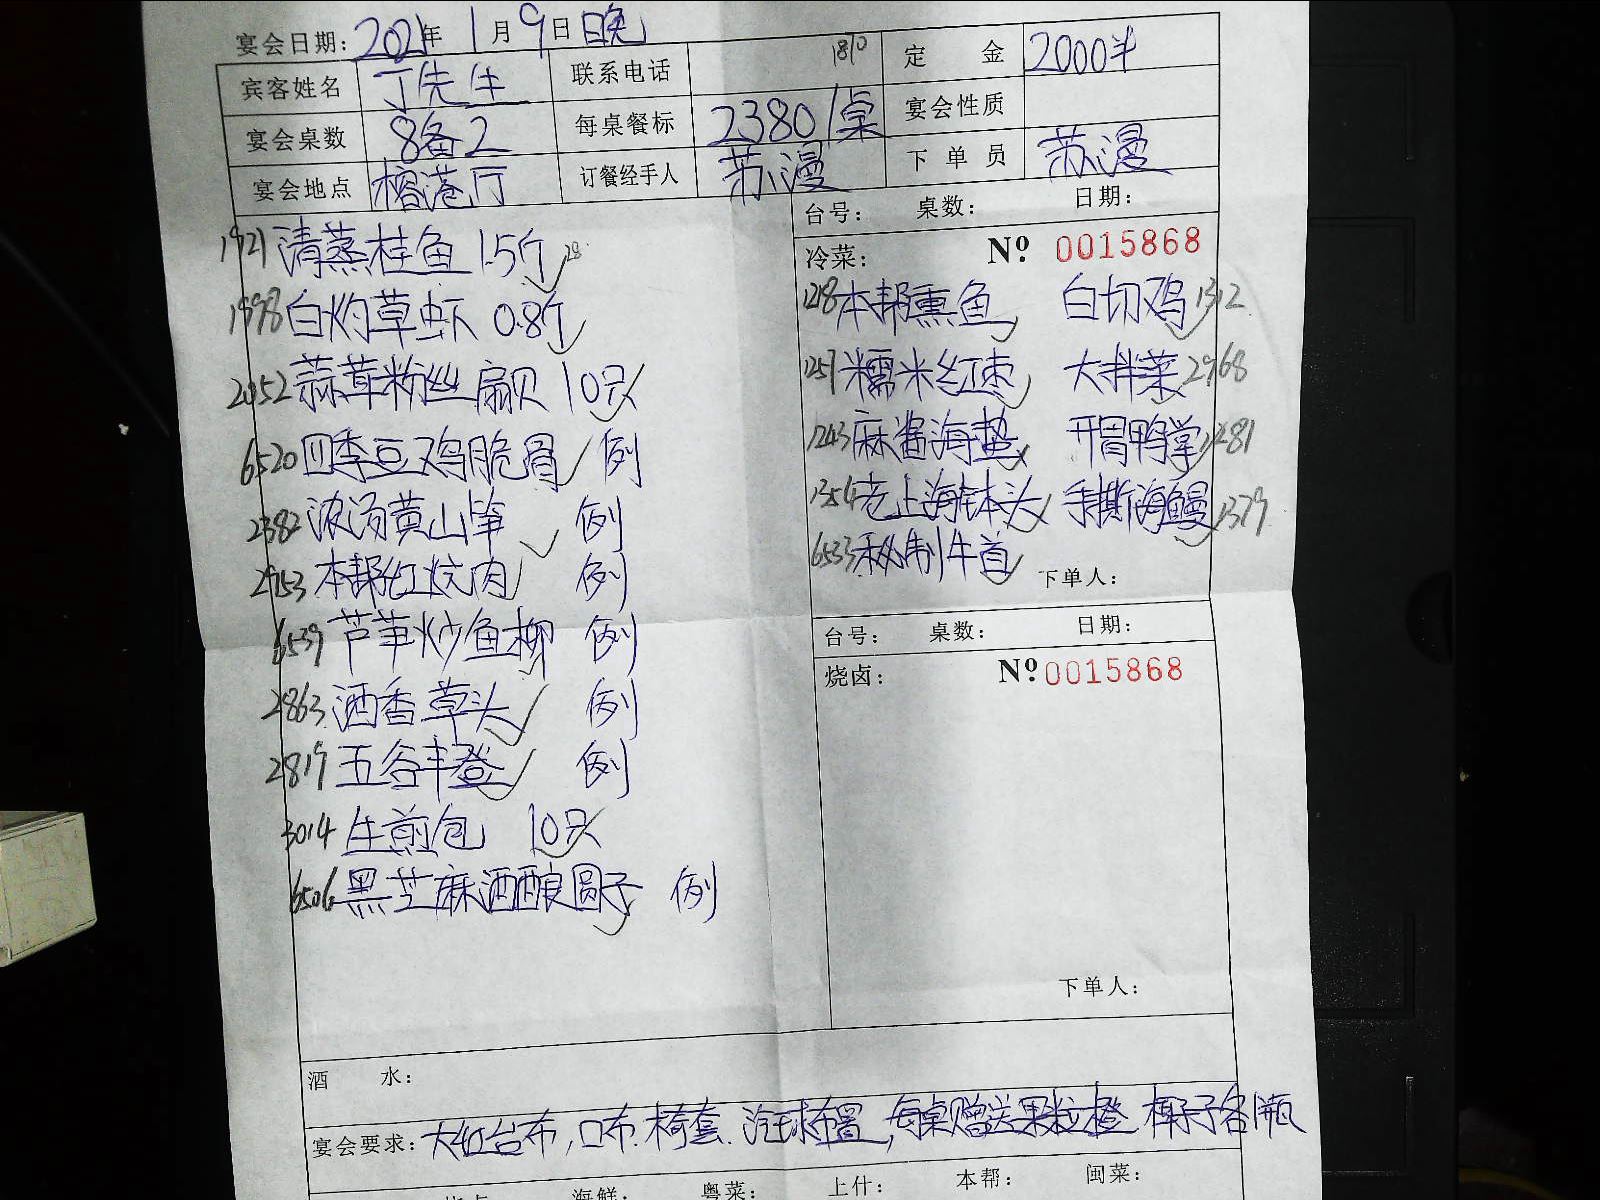 宴会日期: 2021年 1月9日 晚
宾客姓名 丁先生 联系电话 1870 定 金 2000半
宴会桌数 8备2 每桌餐标 2380/桌 宴会性质
宴会地点 榕港厅 订餐经手人 苏漫 下单员 苏漫
1921 清蒸桂鱼 1.5斤 28
1998 白灼草虾 0.8斤
2052 蒜茸粉丝扇贝 10只
6520 四季豆鸡脆骨 例
2382 浓汤黄山笋 例
2953 本帮红烧肉 例
6539 芦笋炒鱼柳 例
2863 酒香草头 例
2819 五谷丰登 例
3014 生煎包 10只
6506 黑芝麻酒酿圆子 例
台号: 桌数: 日期:
冷菜: Nº 0015868
1218 本帮熏鱼 白切鸡 1312
1257 糯米红枣 大拌菜 2968
1243 麻酱海蜇 开胃鸭掌 1281
1354 老上海钵头 手撕海鳗 1379
6533 秘制牛首
下单人:
台号: 桌数: 日期:
烧卤: Nº 0015868
下单人:
酒 水:
宴会要求: 大红台布,口布.椅套.汽球布置,每桌赠送果粒橙 椰子各1瓶
海鲜: 粤菜: 上什: 本帮: 闽菜: